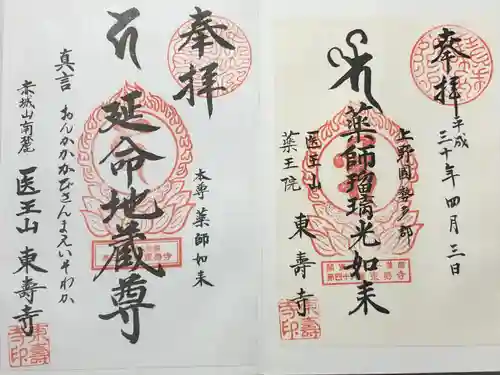 奉拝
本尊 薬師如来
延命地蔵尊
真言 おんかかかびさんまえいそわか
赤城山南麓
医王山 東壽寺
東壽寺印
奉拝
平成三十年四月三日
上野國勢多郡
薬師瑠璃光如来
医王山
薬王院
東壽寺
東壽寺印